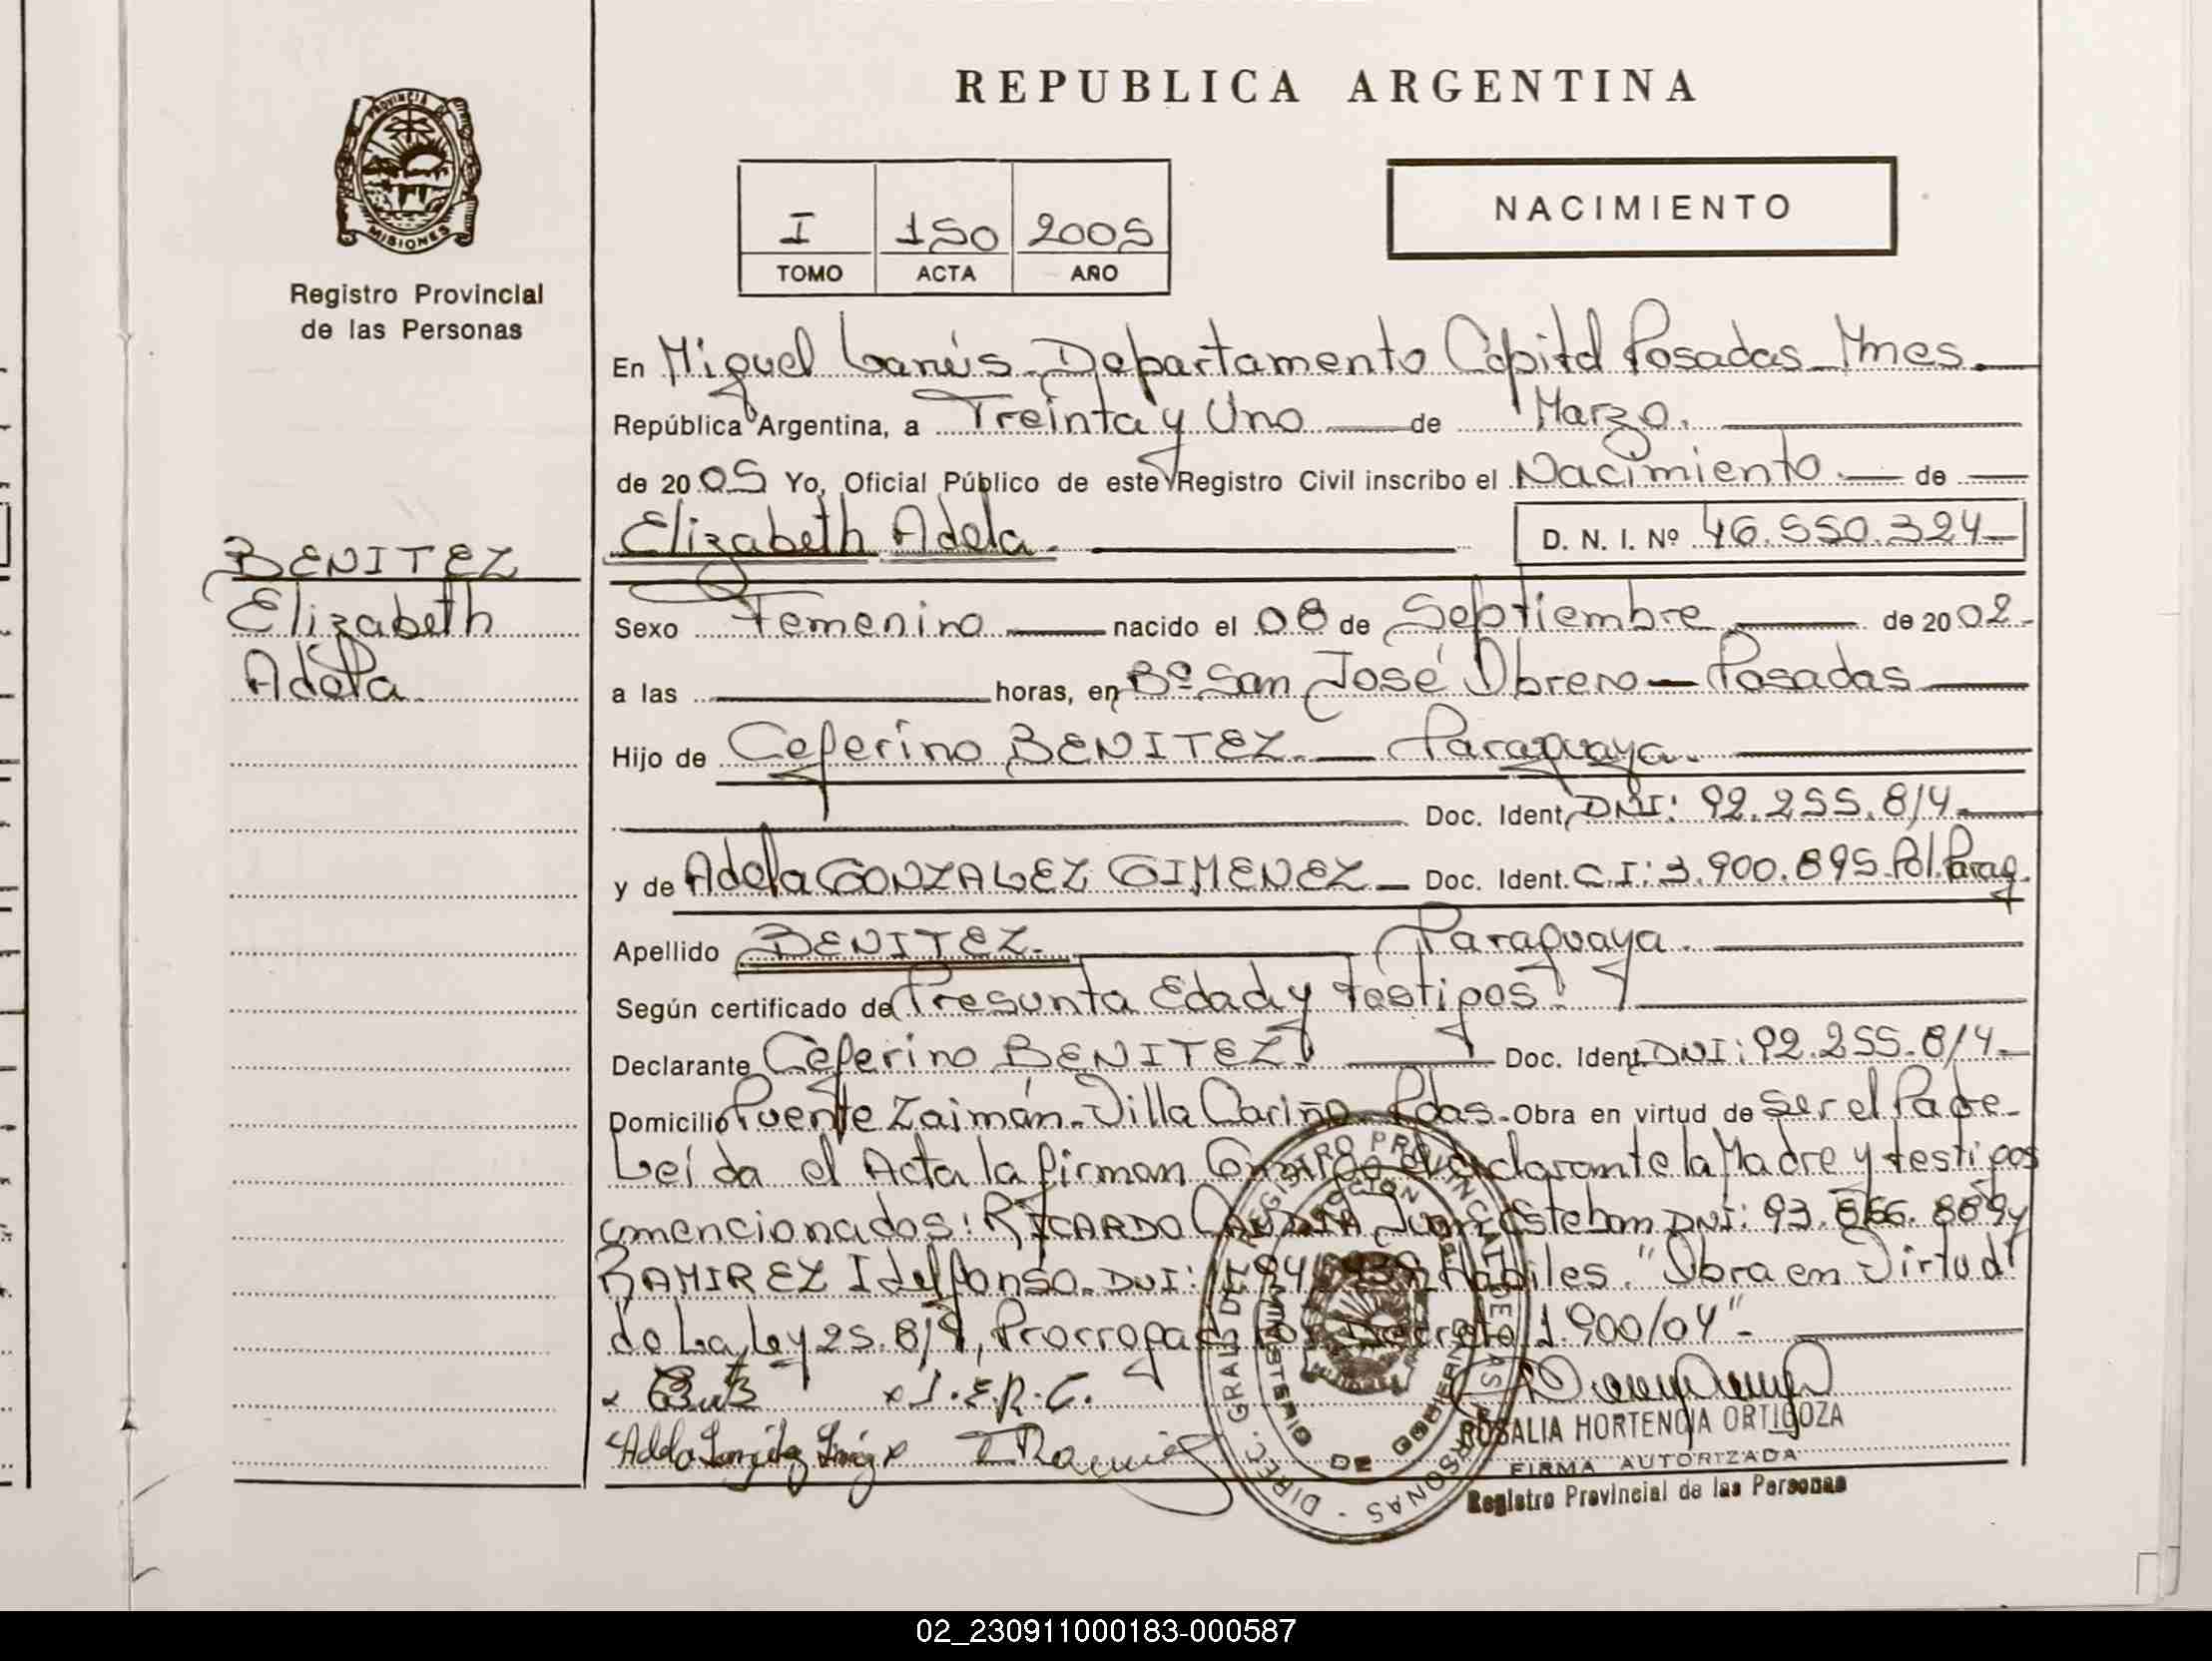 REPUBLICA ARGENTINA
PROVINCIA DE
MISIONES
Registro Provincial
de las Personas
I 150 2005
TOMO ACTA AÑO
NACIMIENTO
En Miguel Lanús - Departamento Capital Posadas - Mnes.
República Argentina, a Treinta y Uno de Marzo.
de 2005 Yo, Oficial Público de este Registro Civil inscribo el Nacimiento de
Elizabeth Adela. D. N. I. Nº 46.550.324
BENITEZ
Elizabeth
Adela.
Sexo Femenino nacido el 08 de Septiembre de 2002.
a las horas, en Bº San José Obrero - Posadas
Hijo de Ceferino BENITEZ. - Paraguaya.
Doc. Ident. DNI: 92.255.814.
y de Adela GONZALEZ GIMENEZ - Doc. Ident. C.I: 3.900.895 Pol. Parag.
Apellido BENITEZ. Paraguaya.
Según certificado de Presunta Edad y testigos.
Declarante Ceferino BENITEZ. Doc. Ident. DNI: 92.255.814.
Domicilio Puente Zaimán - Villa Cariño - Pdas. Obra en virtud de Ser el Padre.
Leída el Acta la firman Conmigo el declarante la Madre y testigos
mencionados: RICARDO Juan Esteban DNI: 93.866.889 y
RAMIREZ Idelfonso. DNI: Habiles. "Obra en Virtud
de La Ley 25.819, Prorrogada por Decreto 1.900/04" -
x J.E.R.C.
ROSALIA HORTENCIA ORTIGOZA
FIRMA AUTORIZADA
Registro Provincial de las Personas
DIREC. GRAL. DEL REGISTRO PROVINCIAL DE LAS PERSONAS
MINISTERIO DE GOBIERNO
MISIONES
02_230911000183-000587